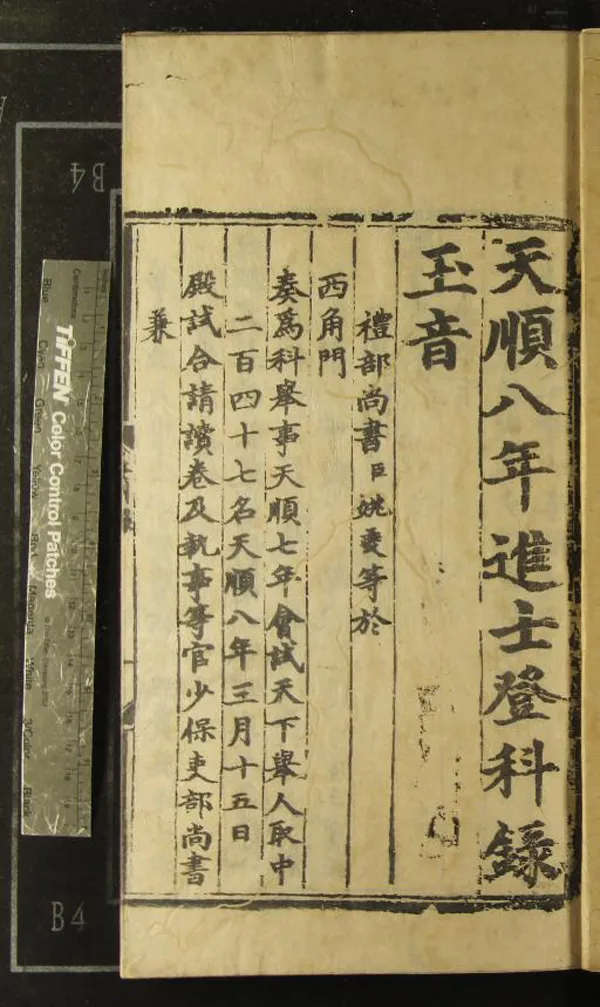 天順八年進士登科録
玉音
禮部尚書臣姚夔等於
西角門
奏爲科舉事天順七年會試天下舉人取中
二百四十七名天順八年三月十五日
殿試合請讀卷及執事等官少保吏部尚書
兼
TIFFEN Color Control Patches
Blue
Cyan
Green
Yellow
Red
Magenta
White
3/Color
Black
Centimetres
B4
B4